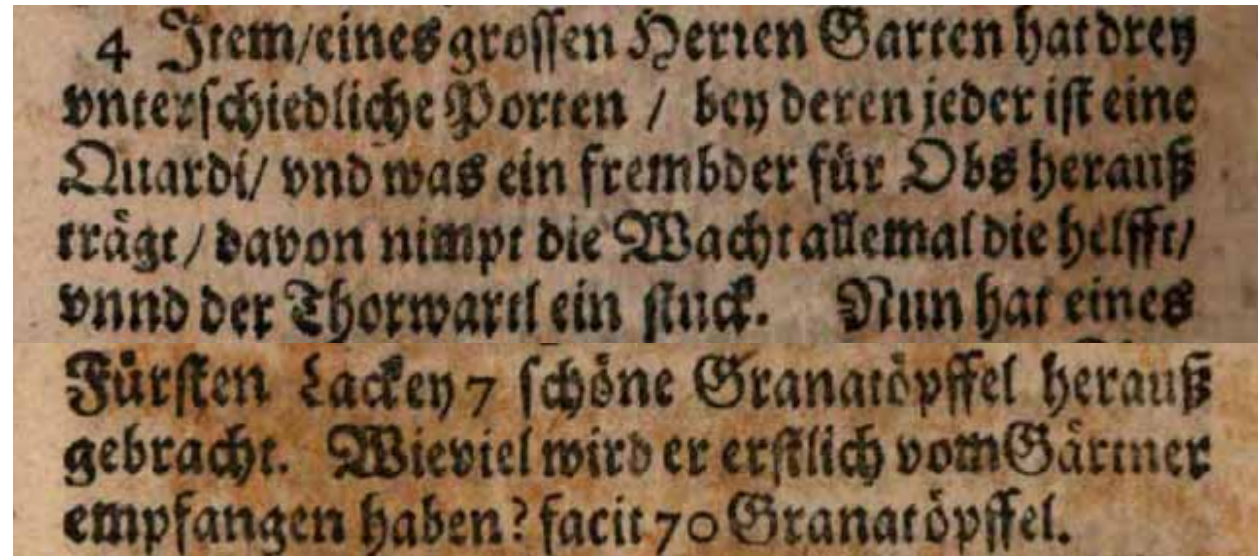 4 Item/eines grossen Herren Garten hat drey
vnterschiedliche Porten / bey deren jeder ist eine
Quardi/ vnd was ein frembder für Obs herauß
trägt / davon nimpt die Wacht allemal die helfft/
vnnd der Thorwartl ein stuck. Nun hat eines
Fürsten Lackey 7 schöne Granatöpffel herauß
gebracht. Wieviel wird er erstlich vom Gärtner
empfangen haben? facit 70 Granatöpffel.